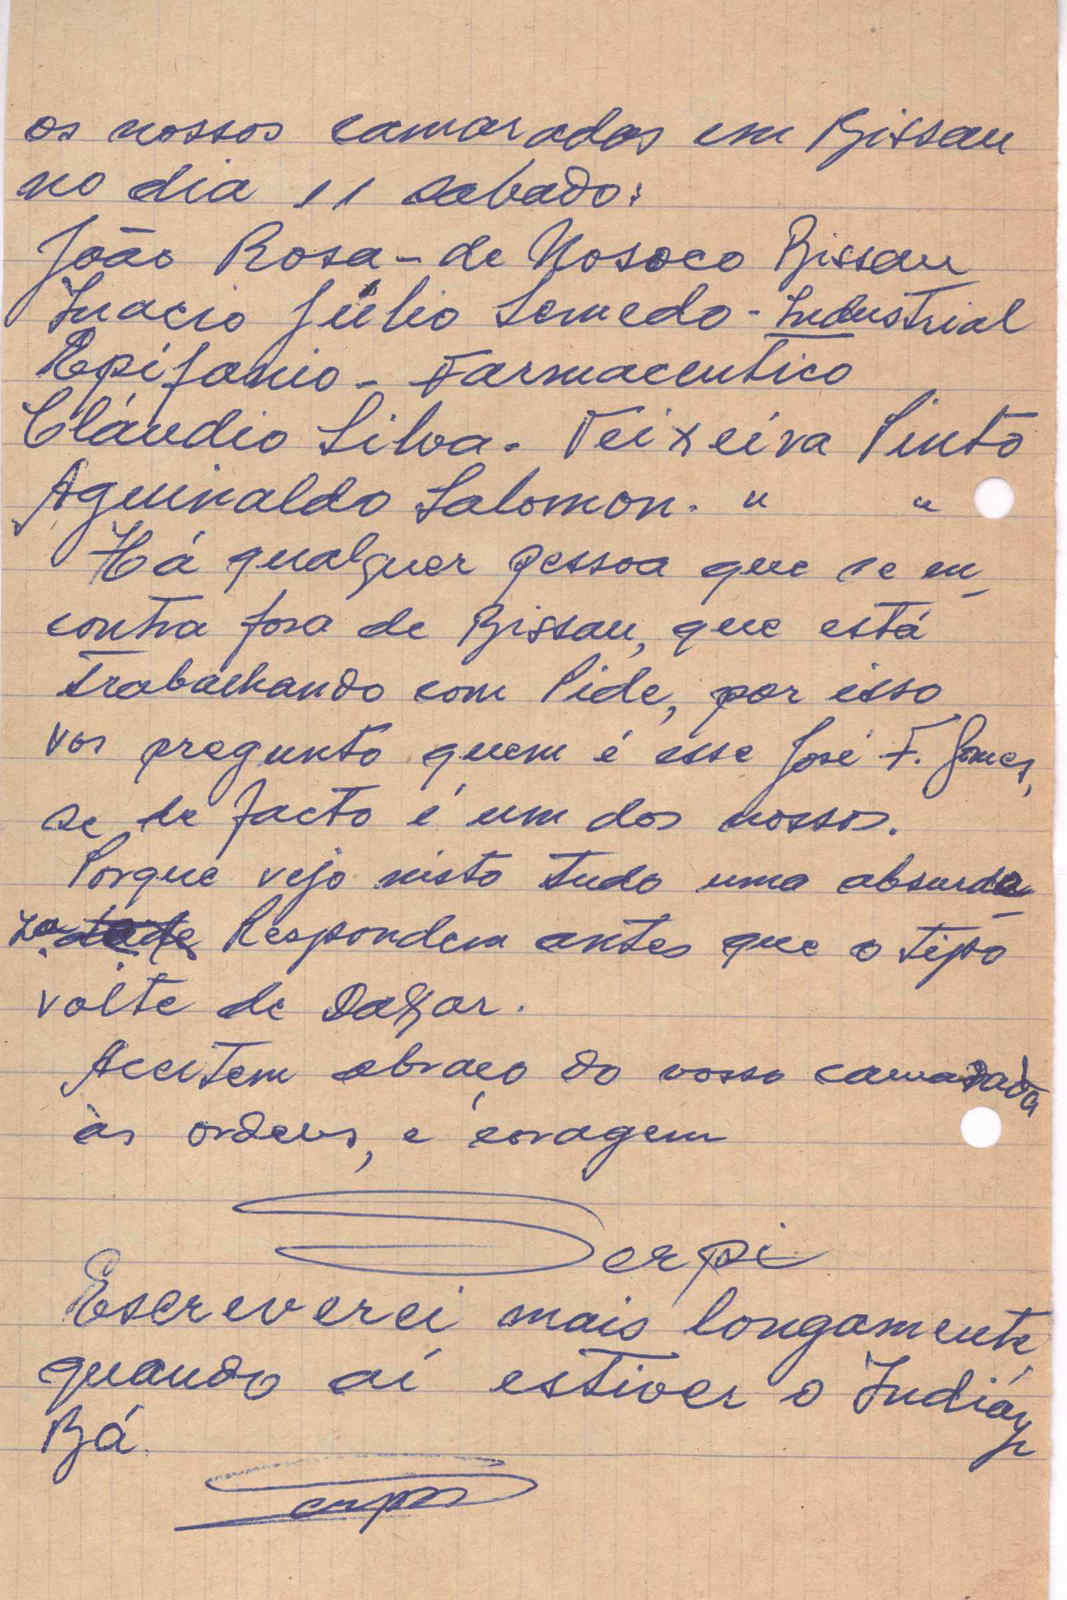 os nossos camaradas em Bissau
no dia 11 sabado:
João Rosa - de Nosoco Bissau
Inacio Júlio Semedo - Industrial
Epifanio - Farmaceutico
Cláudio Silva - Teixeira Pinto
Aguinaldo Salomon. " "
Há qualquer pessoa que se en_
contra fora de Bissau, que está
trabalhando com Pide, por isso
vos pregunto quem é esse José F. Gomes,
se de facto é um dos nossos.
Porque vejo nisto tudo uma absurde
za. Respondem antes que o tipo
volte de Dakar.
Aceitem abraço do vosso camarada
às ordens, e coragem
Serpi
Escreverei mais longamente
quando aí estiver o Indiáy
Bá.
Serpi